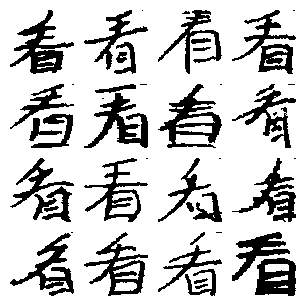 看看看看
看看看看
看看看看
看看看看